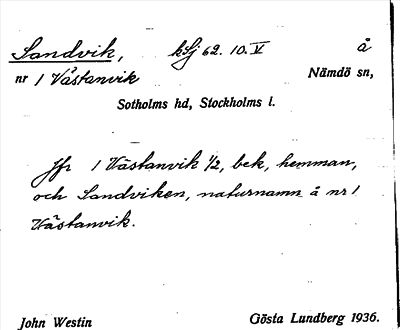 Sandvik, kSj 62. 10. V å
nr 1 Västanvik Nämdö sn,
Sotholms hd, Stockholms l.
Jfr 1 Västanvik 1/2, bek, hemman,
och Sandviken, naturnamn å nr 1
Västanvik.
John Westin Gösta Lundberg 1936.